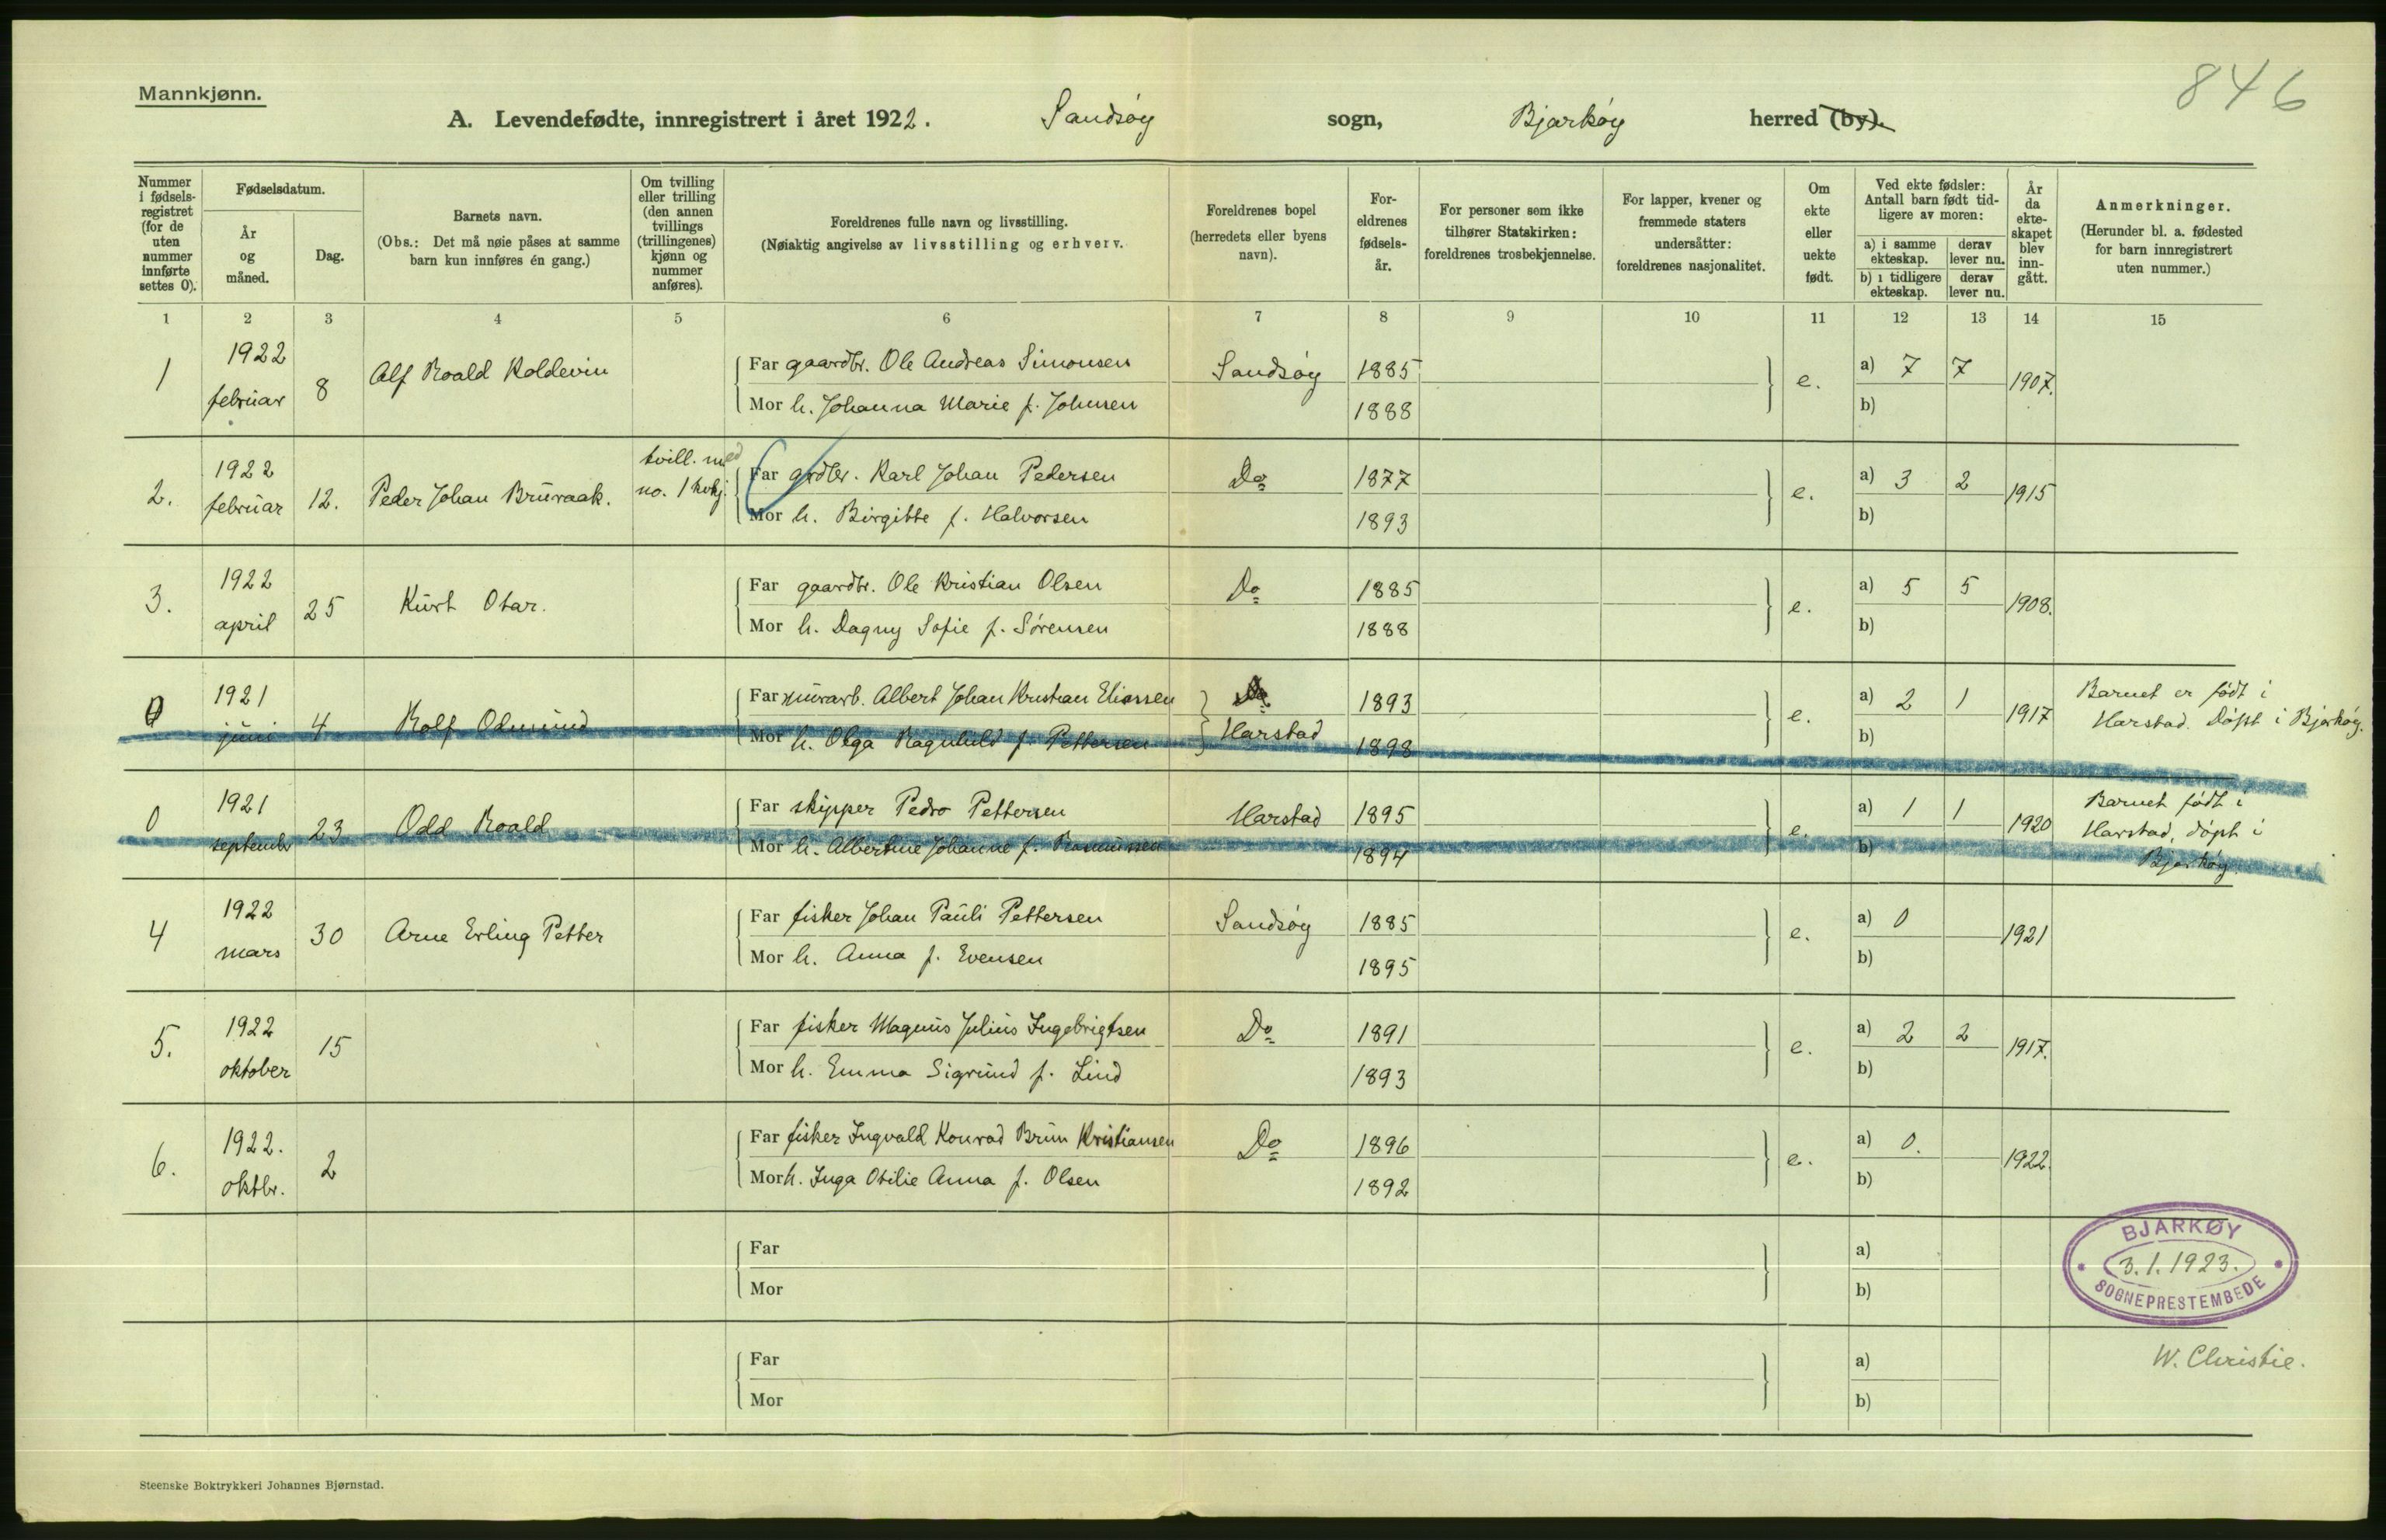 846
Mannkjønn.
A. Levendefødte, innregistrert i året 1922. Sandsøy sogn, Bjarkøy herred (by).
Nummer i fødselsregistret (for de uten nummer innførte settes 0).
Fødselsdatum.
År og måned.
Dag.
Barnets navn.
(Obs.: Det må nøie påses at samme barn kun innføres én gang.)
Om tvilling eller trilling (den annen tvillings (trillingenes) kjønn og nummer anføres).
Foreldrenes fulle navn og livsstilling.
(Nøiaktig angivelse av livsstilling og erhverv.
Foreldrenes bopel (herredets eller byens navn).
For-eldrenes fødsels-år.
For personer som ikke tilhører Statskirken: foreldrenes trosbekjennelse.
For lapper, kvener og fremmede staters undersåtter: foreldrenes nasjonalitet.
Om ekte eller uekte født.
Ved ekte fødsler: Antall barn født tidligere av moren:
a) i samme ekteskap. derav lever nu.
b) i tidligere ekteskap. derav lever nu.
År da ekte-skapet blev inn-gått.
Anmerkninger.
(Herunder bl. a. fødested for barn innregistrert uten nummer.)
1 2 3 4 5 6 7 8 9 10 11 12 13 14 15
1 1922 februar 8 Alf Roald Koldevin
Far gaardbr. Ole Andreas Simonsen Sandsøy 1885 e. a) 7 7 1907.
Mor h. Johanna Marie f. Johnsen 1888 b)
2. 1922 februar 12. Peder Johan Bruvaak. tvill. med no. 1 kvkj.
Far grdbr. Karl Johan Pedersen Do 1877 e. a) 3 2 1915
Mor h. Birgitte f. Halvorsen 1893 b)
3. 1922 april 25 Kurt Otar.
Far gaardbr. Ole Kristian Olsen Do 1885 e. a) 5 5 1908.
Mor h. Dagny Sofie f. Sørensen 1888 b)
0 1921 juni 4 Rolf Odmund
Far murarb. Albert Johan Kristian Eliassen Do 1893 e. a) 2 1 1917 Barnet er født i
Mor h. Olga Ragnhild f. Pettersen Harstad 1898 b) Harstad. Døpt i Bjarkøy.
0 1921 septembr 23 Odd Roald
Far skipper Pedro Pettersen Harstad 1895 e. a) 1 1 1920 Barnet født i
Harstad, døpt i
Mor h. Albertine Johanne f. Rasmussen 1894 b) Bjarkøy.
4 1922 mars 30 Arne Erling Petter
Far fisker Johan Pauli Pettersen Sandsøy 1885 e. a) 0 1921
Mor h. Anna f. Evensen 1895 b)
5. 1922 oktober 15
Far fisker Magnus Julius Ingebrigtsen Do 1891 e. a) 2 2 1917.
Mor h. Emma Sigrund f. Lind 1893 b)
6. 1922. oktbr. 2
Far fisker Ingvald Konrad Brun Kristiansen Do 1896 e. a) 0. 1922.
Mor h. Inga Otilie Anna f. Olsen 1892 b)
Far a)
Mor b)
BJARKØY
3.1.1923.
SOGNEPRESTEMBEDE
Far a)
Mor b)
W. Christie.
Steenske Boktrykkeri Johannes Bjørnstad.